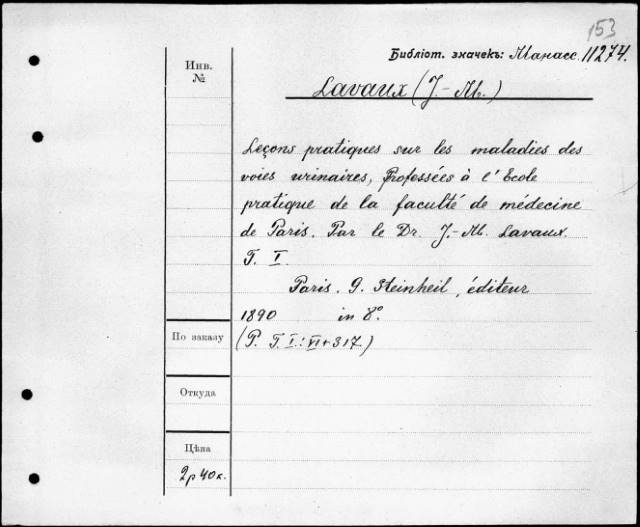 153
Библіот. значекъ: Манасс. 11274.
Инв. №
Lavaux (J.-M.)
Leçons pratiques sur les maladies des
voies urinaires, Professées à l'Ecole
pratique de la faculté de médecine
de Paris. Par le Dr. J.-M. Lavaux.
T. I.
Paris. G. Steinheil, éditeur
1890 in 8°.
По заказу
(P. T. I.: VI+317.)
Откуда
Цѣна
2р 40к.